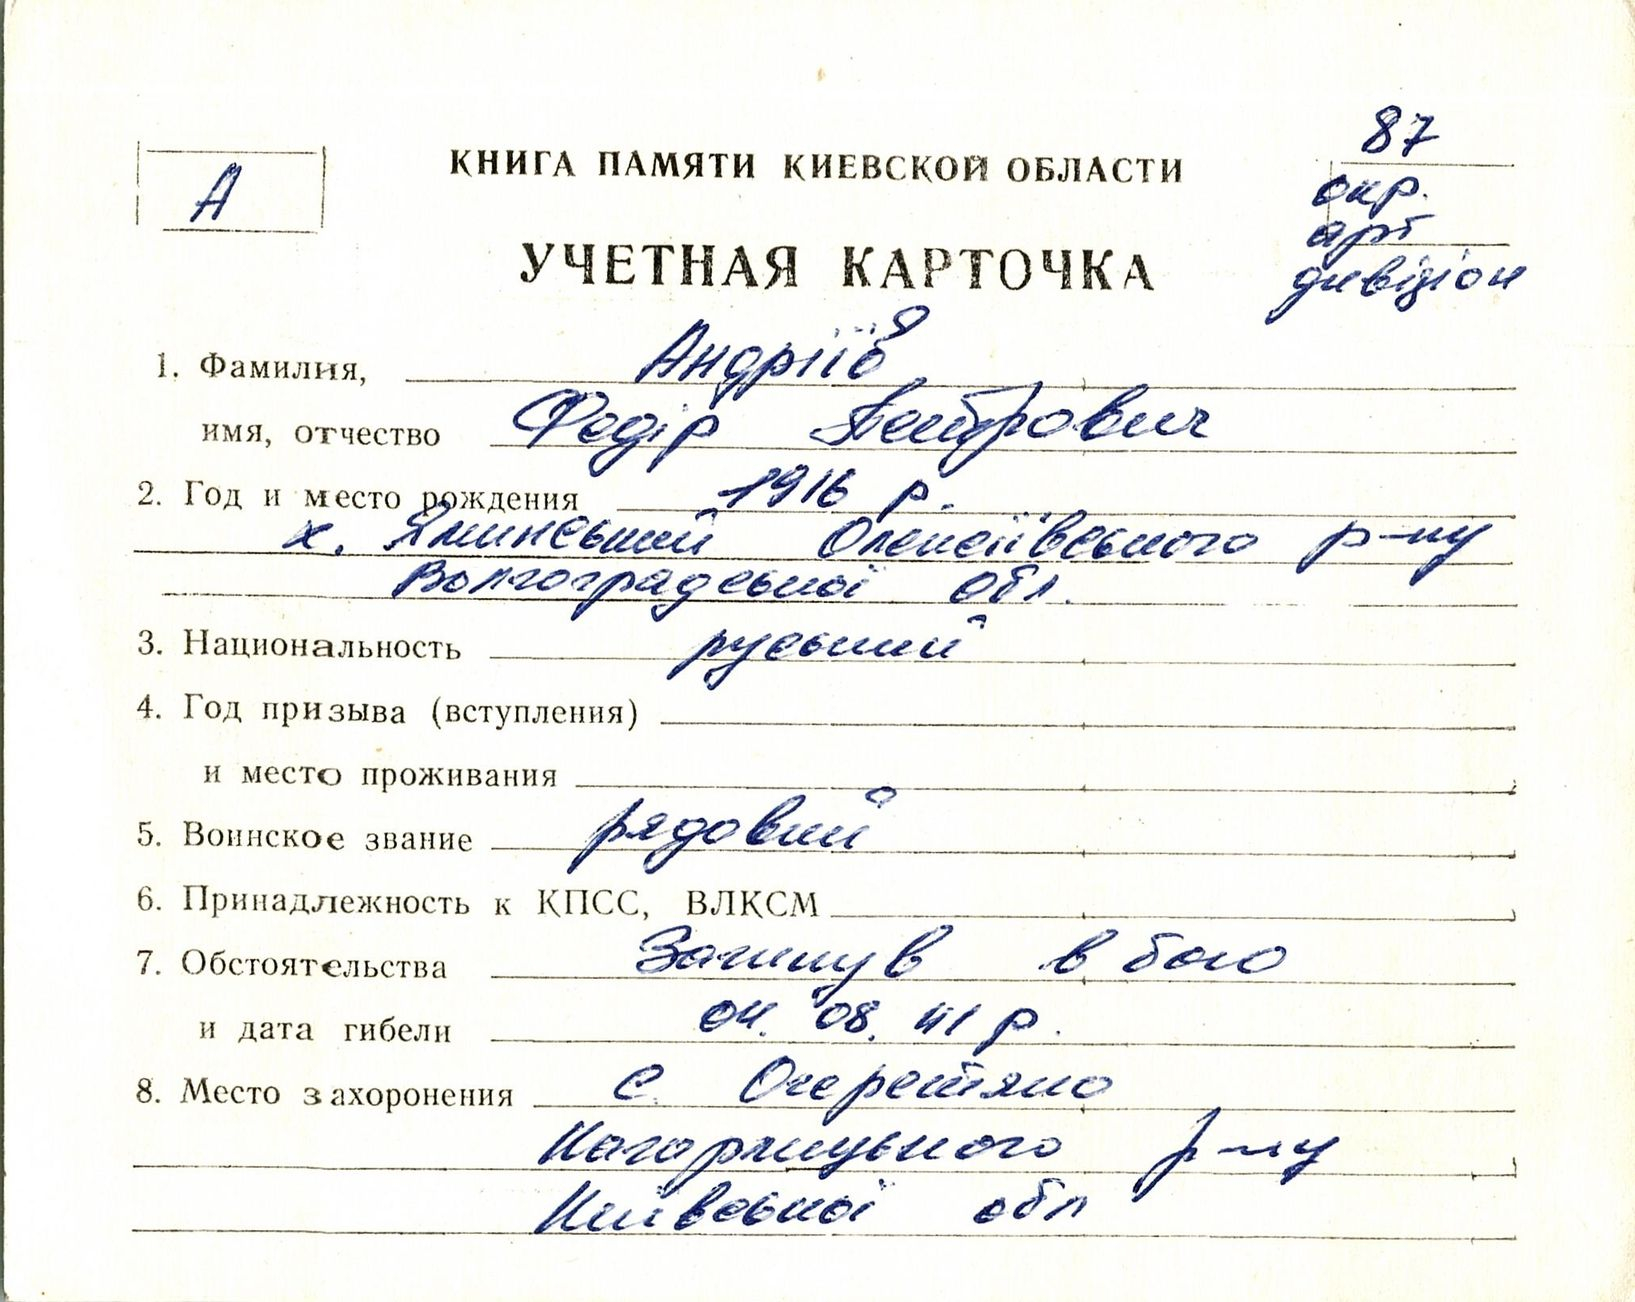 87
А
КНИГА ПАМЯТИ КИЕВСКОЙ ОБЛАСТИ
окр.
арт
дивізіон
УЧЕТНАЯ КАРТОЧКА
1. Фамилия, Андріїв
имя, отчество Федір Петрович
2. Год и место рождения 1916 р.
х. Яминський Олексіївського р-ну
Волгоградської обл.
3. Национальность руський
4. Год призыва (вступления)
и место проживания
5. Воинское звание рядовий
6. Принадлежность к КПСС, ВЛКСМ
7. Обстоятельства Загинув в бою
и дата гибели 04. 08. 41 р.
8. Место захоронения с. Очеретяно
р-ну
Київської обл